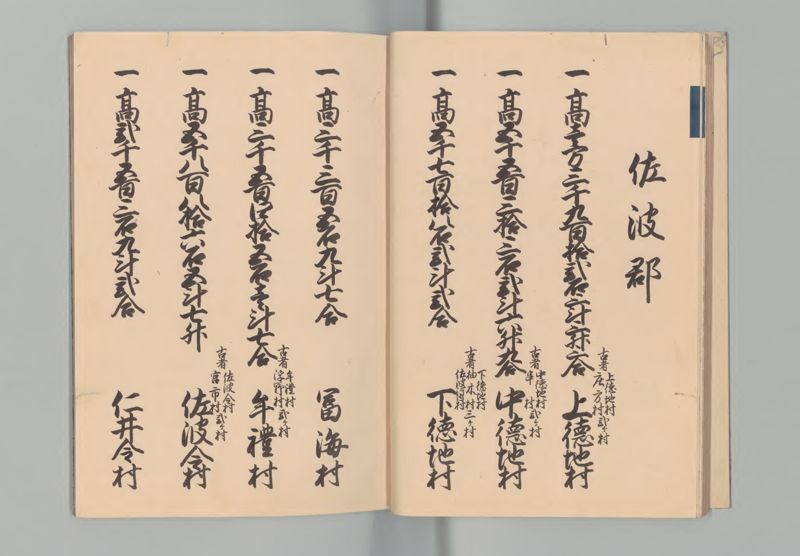 佐波郡
一高壱万三千九百拾弐石三斗三升三合
古者上徳地村
庄方村弐ヶ村
上徳地村
一高五千五百三拾三石弐斗六升九合
古者中徳地村
村弐ヶ村
中徳地村
一高五千七百拾八石弐斗弐合
下徳地村
古者柚木村三ヶ村
下徳地村
一高三千三百五石九斗七合
冨海村
一高三千五百四拾五石壱斗七合
古者牟禮村
村弐ヶ村
牟禮村
一高五千八百八拾六石五斗七升
古者佐波令村
宮市村弐ヶ村
佐波令村
一高弐千五百三石九斗弐合
仁井令村